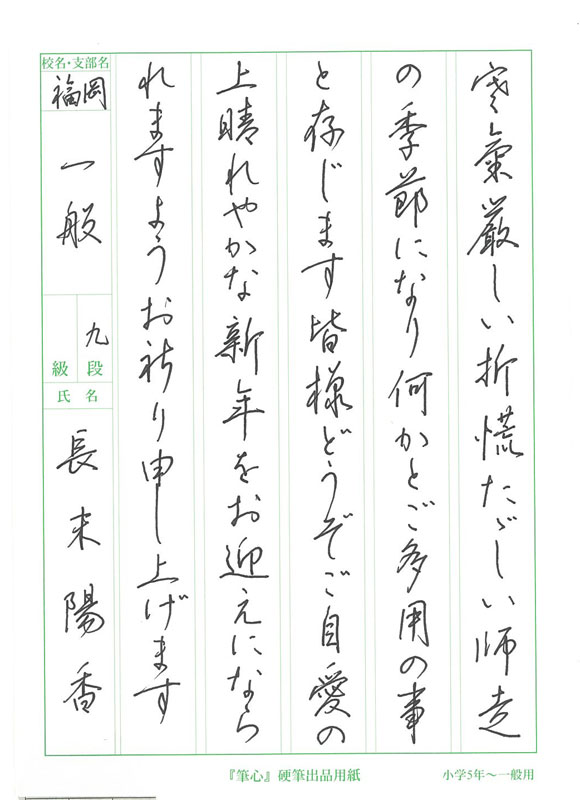 寒氣厳しい折慌たゞしい師走
の季節になり何かとご多用の事
と存じます皆様どうぞご自愛の
上晴れやかな新年をお迎えになら
れますようお祈り申し上げます
校名・支部名
福岡
一般
九
段
級
氏名
長末陽香
『筆心』硬筆出品用紙
小学5年～一般用